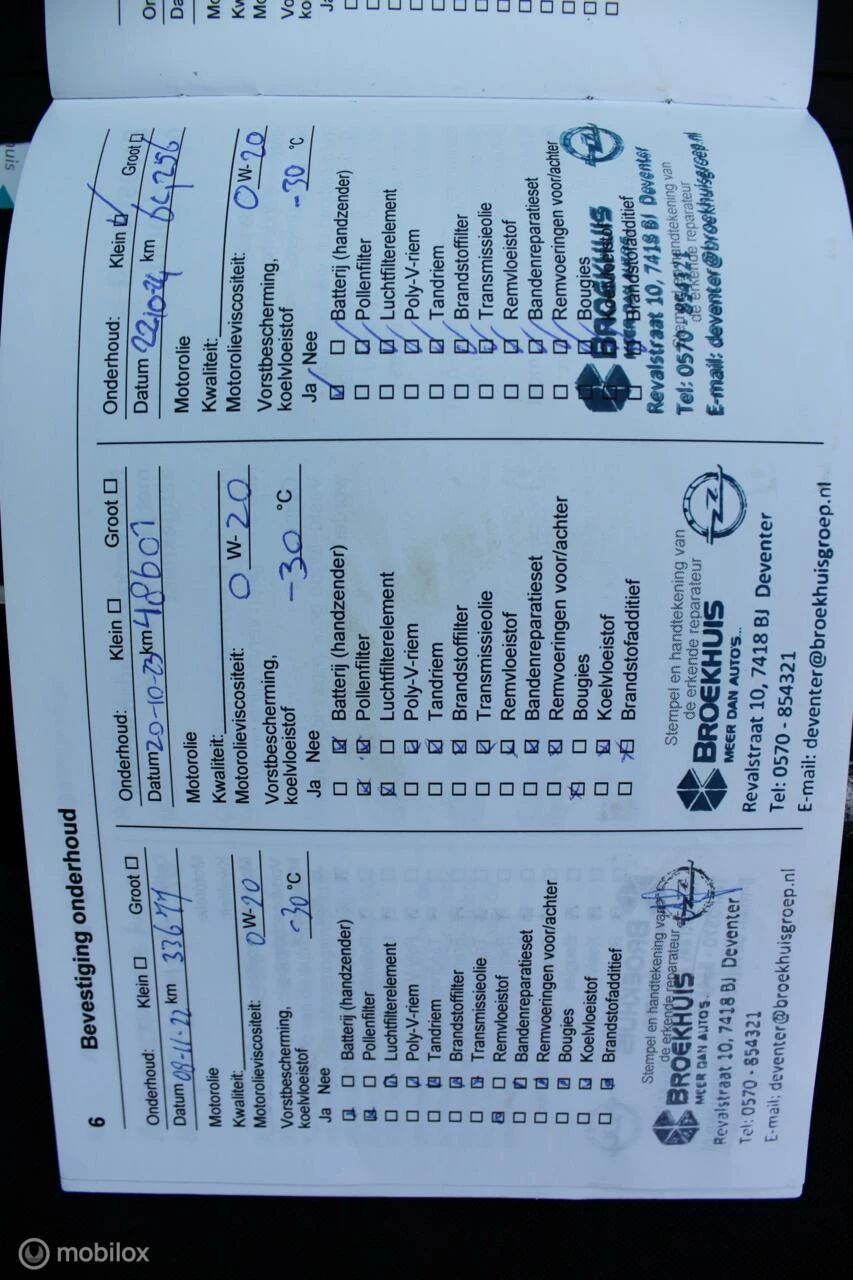 6
Bevestiging onderhoud
Onderhoud: Klein Groot
Datum 09-11-22 km 33677
Motorolie
Kwaliteit:
Motorolieviscositeit: 0 W-20
Vorstbescherming,
koelvloeistof -30 °C
Ja Nee
Batterij (handzender)
Pollenfilter
Luchtfilterelement
Poly-V-riem
Tandriem
Brandstoffilter
Transmissieolie
Remvloeistof
Bandenreparatieset
Remvoeringen voor/achter
Bougies
Koelvloeistof
Brandstofadditief
Stempel en handtekening van
de erkende reparateur
BROEKHUIS
MEER DAN AUTO'S...
Revalstraat 10, 7418 BJ Deventer
Tel: 0570 - 854321
E-mail: deventer@broekhuisgroep.nl
Onderhoud: Klein Groot
Datum 20-10-23 km 48601
Motorolie
Kwaliteit:
Motorolieviscositeit: 0 W-20
Vorstbescherming,
koelvloeistof -30 °C
Ja Nee
Batterij (handzender)
Pollenfilter
Luchtfilterelement
Poly-V-riem
Tandriem
Brandstoffilter
Transmissieolie
Remvloeistof
Bandenreparatieset
Remvoeringen voor/achter
Bougies
Koelvloeistof
Brandstofadditief
Stempel en handtekening van
de erkende reparateur
BROEKHUIS
MEER DAN AUTO'S...
Revalstraat 10, 7418 BJ Deventer
Tel: 0570 - 854321
E-mail: deventer@broekhuisgroep.nl
Onderhoud: Klein Groot
Datum 22-10-24 km
Motorolie
Kwaliteit:
Motorolieviscositeit: 0 W-20
Vorstbescherming,
koelvloeistof -30 °C
Ja Nee
Batterij (handzender)
Pollenfilter
Luchtfilterelement
Poly-V-riem
Tandriem
Brandstoffilter
Transmissieolie
Remvloeistof
Bandenreparatieset
Remvoeringen voor/achter
Bougies
Koelvloeistof
Brandstofadditief
Stempel en handtekening van
de erkende reparateur
BROEKHUIS
MEER DAN AUTO'S
Revalstraat 10, 7418 BJ Deventer
Tel: 0570 - 854321
E-mail: deventer@broekhuisgroep.nl
mobilox